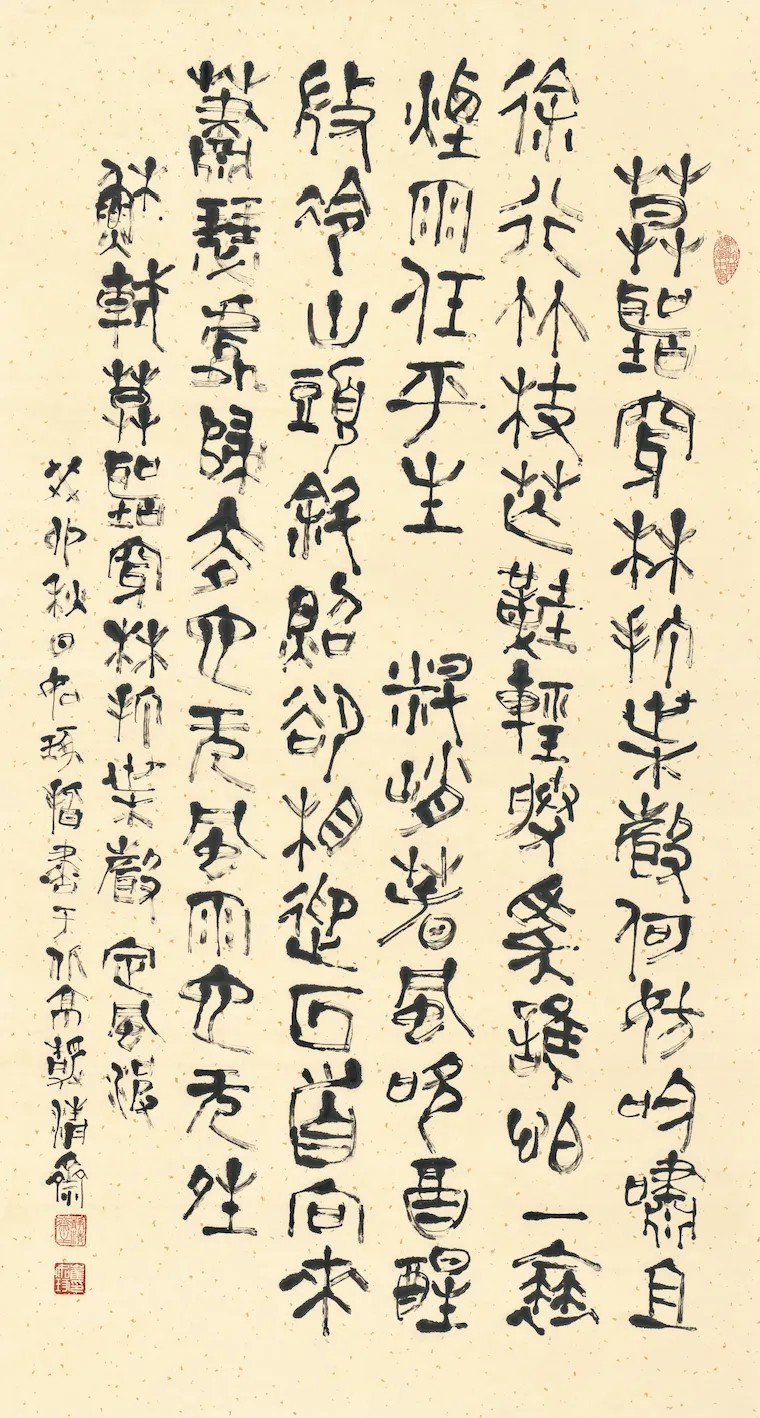 莫聽穿林打葉聲何妨吟嘯且
徐行竹杖芒鞋輕勝馬誰怕一蓑
煙雨任平生 料峭春風吹酒醒
微冷山頭斜照卻相迎回首向來
蕭瑟處歸去也無風雨也無晴
蘇軾莫聽穿林打葉聲 定風波
癸卯秋日書于北京清齋